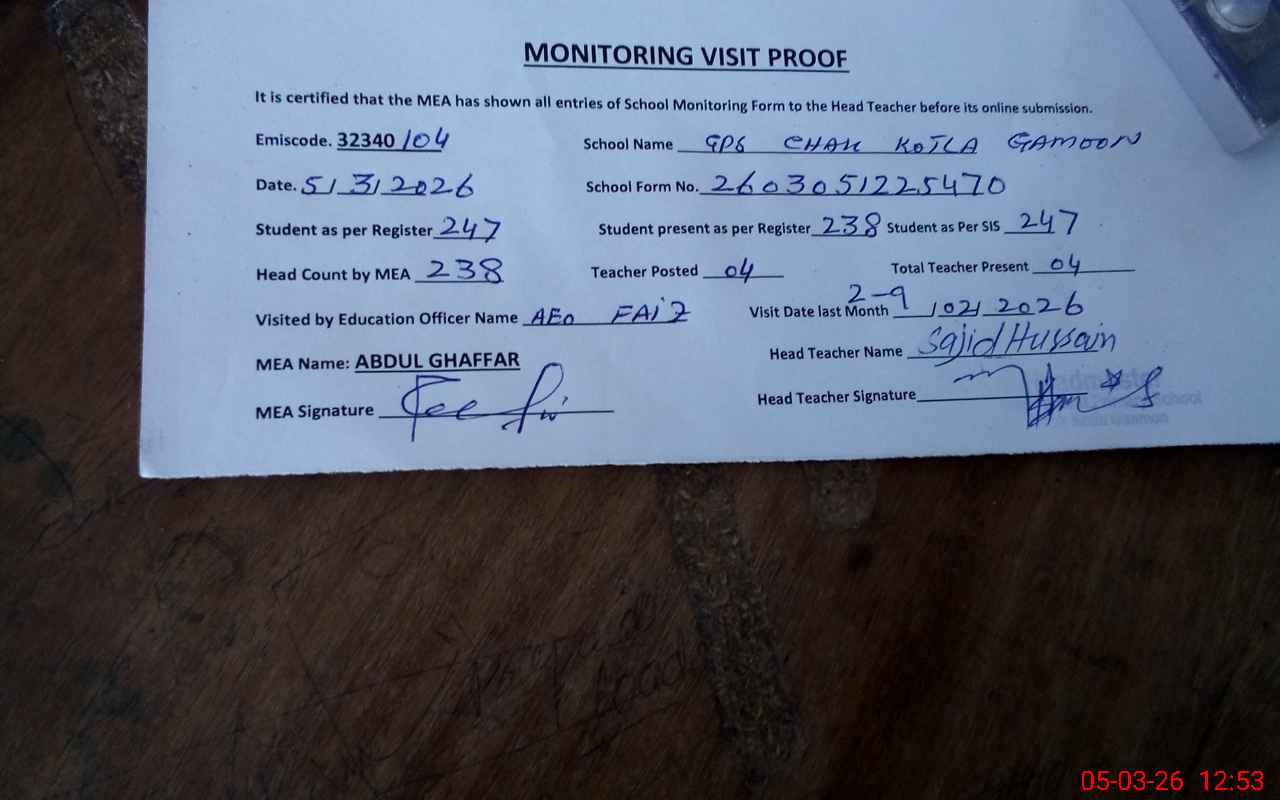 MONITORING VISIT PROOF
It is certified that the MEA has shown all entries of School Monitoring Form to the Head Teacher before its online submission.
Emiscode. 32340104 School Name GPS CHAK KOTLA GAMOON
Date. 5/3/2026 School Form No. 2603051225470
Student as per Register 247 Student present as per Register 238 Student as Per SIS 247
Head Count by MEA 238 Teacher Posted 04 Total Teacher Present 04
Visited by Education Officer Name AEO FAIZ Visit Date last Month 2-9/02/2026
MEA Name: ABDUL GHAFFAR Head Teacher Name Sajid Hussain
MEA Signature Head Teacher Signature
05-03-26 12:53